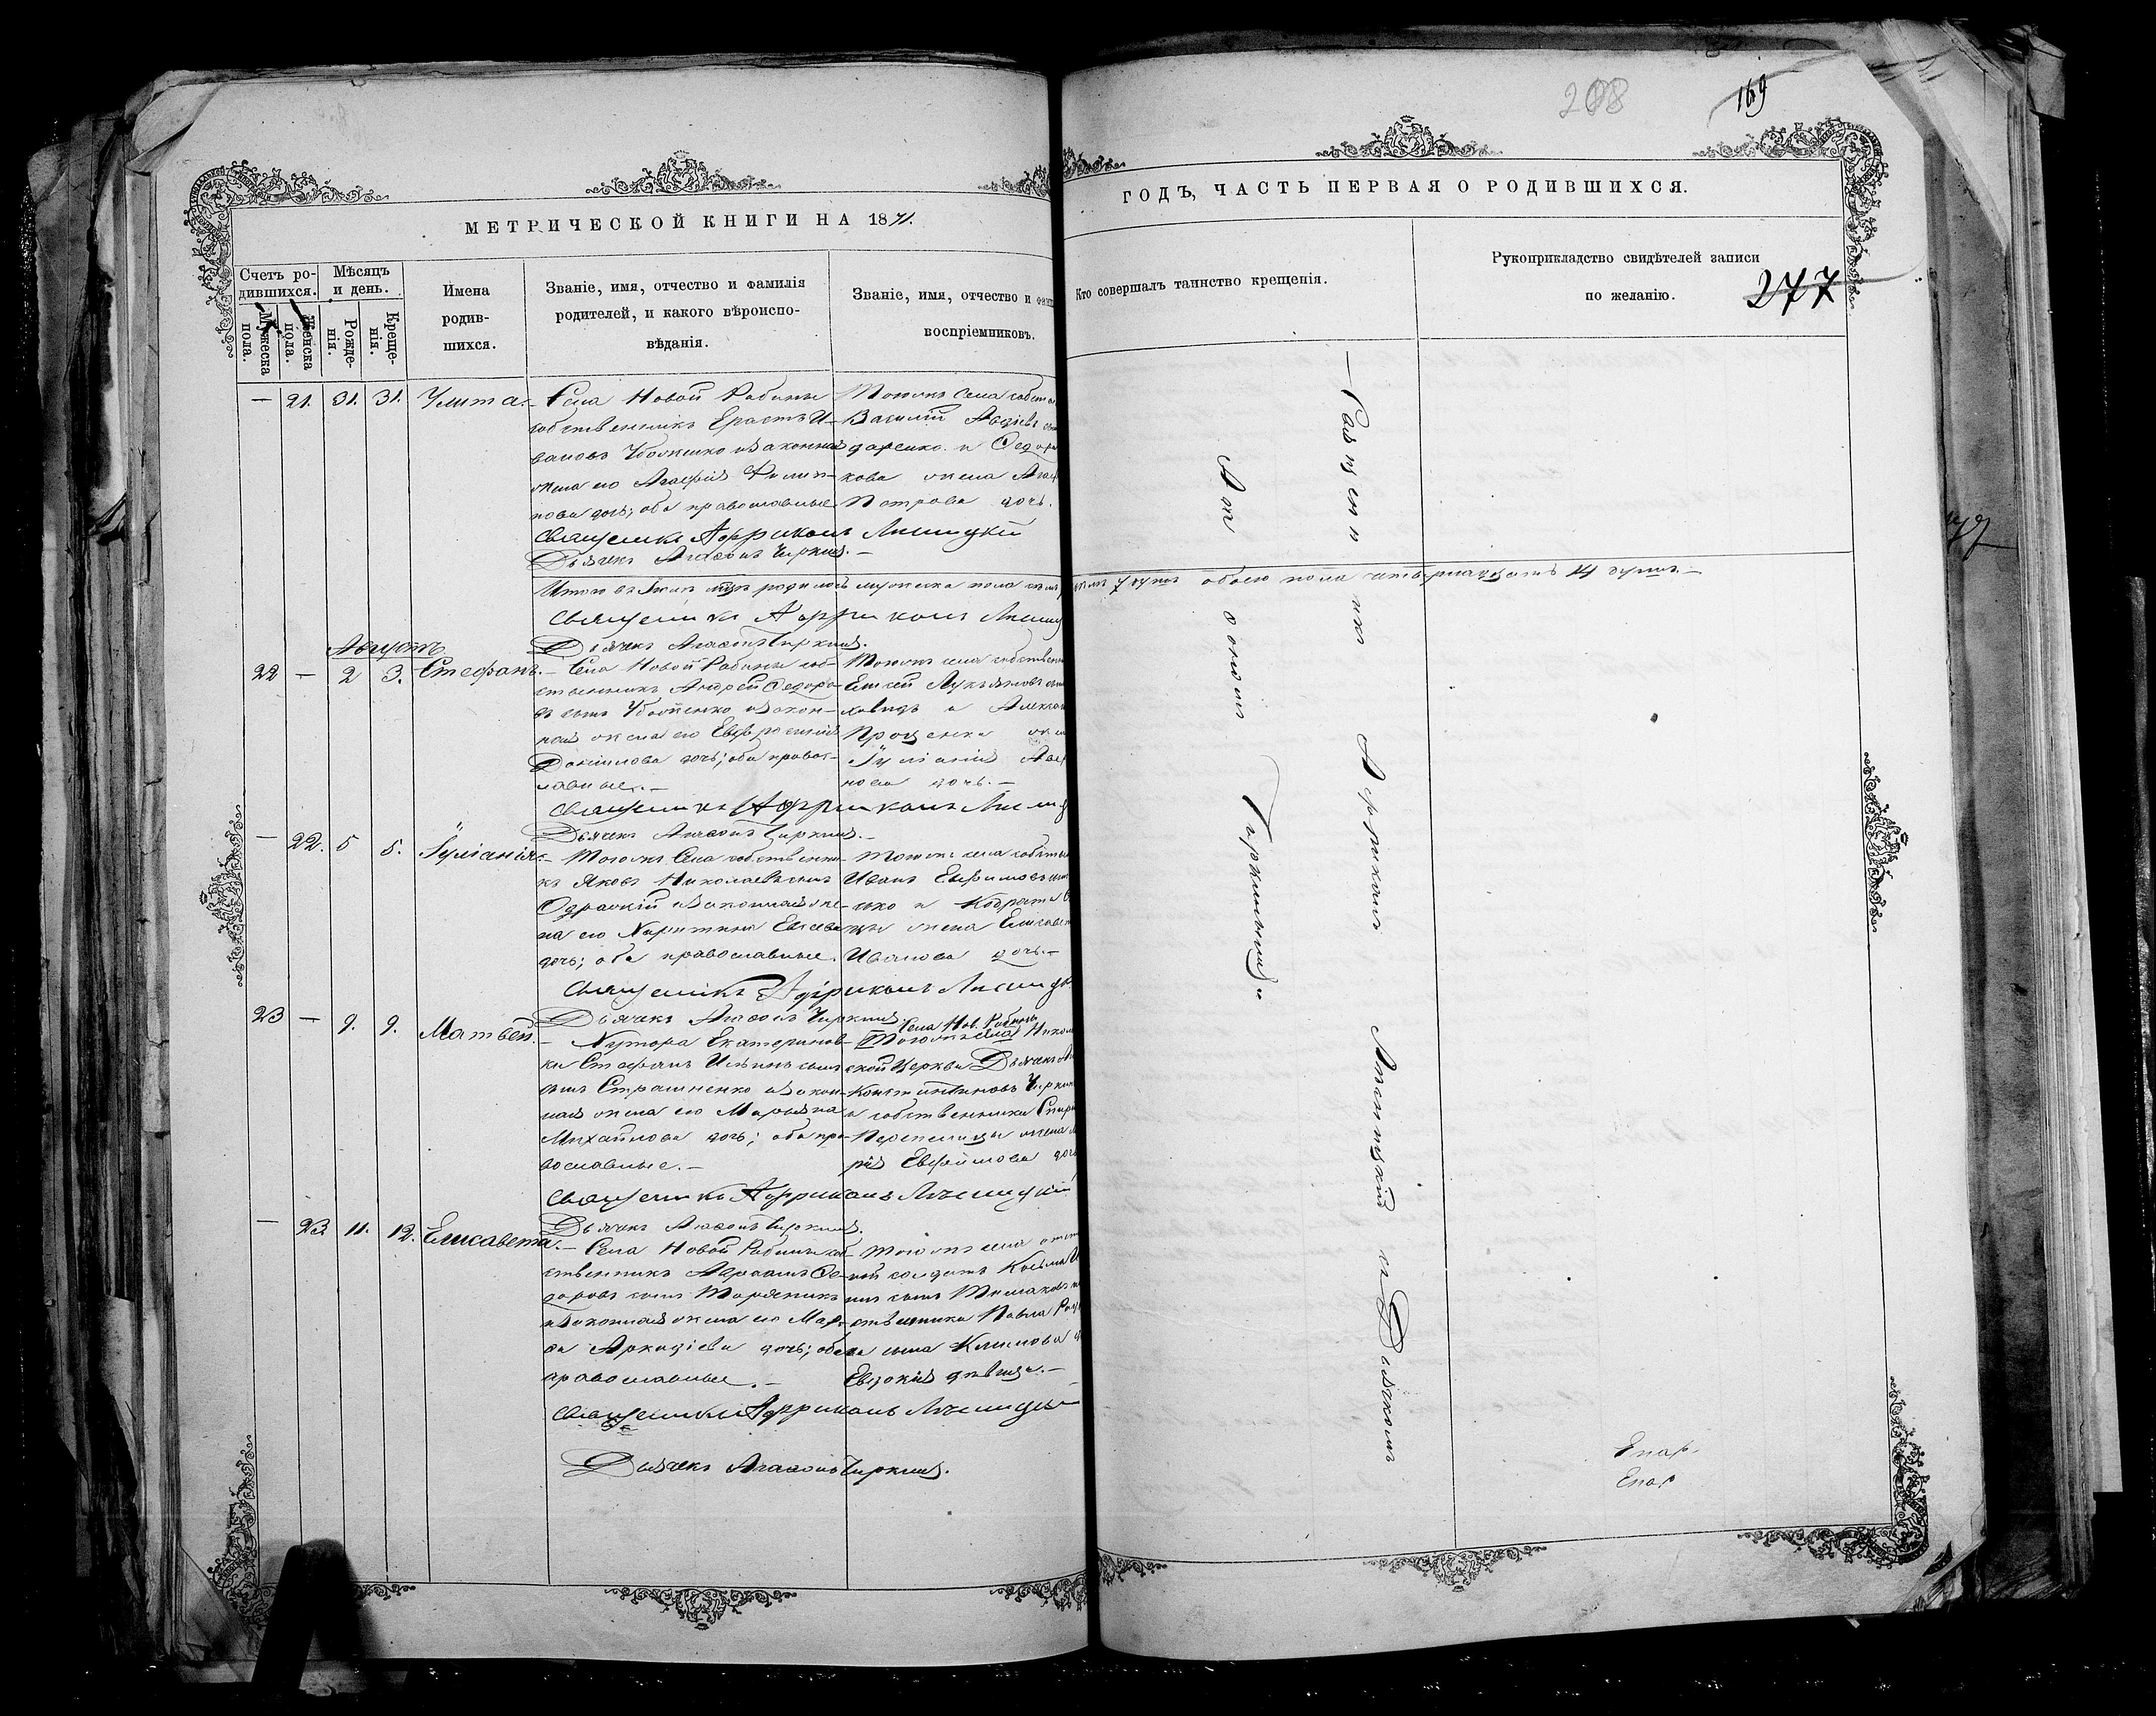 208
169
МЕТРИЧЕСКОЙ КНИГИ НА 1871.
ГОДЪ, ЧАСТЬ ПЕРВАЯ О РОДИВШИХСЯ.
Счетъ ро-
дившихся.
Мѣсяцъ
и день.
Мужеска
пола.
Женска
пола.
Рожде-
нія.
Креще-
нія.
Имена
родив-
шихся.
Званіе, имя, отчество и фамилія
родителей, и какого вѣроиспо-
вѣданія.
Званіе, имя, отчество и фами
воспріемниковъ.
Кто совершалъ таинство крещенія.
Рукоприкладство свидѣтелей записи
по желанію.
277
— 21. 31. 31. Улита.
Села Новой Рабины
собственникъ Ерастъ И-
вановъ и законная
жена его Агафія Филип-
пова дочь; оба православные.
Тогожъ села собстве
Василій
даренко. и Федор
кова жена Агаф
Петрова дочь.
Священникъ Африканъ Лисицкій
Дьячекъ Агафонъ Чиркинъ.—
Итого въ Іюлѣ мцѣ родилось мужеска пола семь
7 душъ обоего пола четырнадцать 14 душъ.—
Священникъ Африканъ Лисиц
Дьячекъ Агафонъ Чиркинъ.
Августъ
22 — 2 3. Стефанъ.
— Села Новой Рабины соб-
ственникъ Андрей Федоро-
въ сынъ и закон-
ная жена его Евфросинія
Данилова дочь; оба правос-
лавные.—
Тогожъ села собственн
Елисей Лукьяновъ сын
и Алекса
Проценка жен
Іуліанія
нова дочь.—
Священникъ Африканъ Лисиц
Дьячекъ Агафонъ Чиркинъ.—
— 22. 5 5. Іуліанія.
— Тогожъ Села собственни-
къ Яковъ Николаевъ сынъ
Одраскій и законная же-
на его Харитина Евсеева
дочь; оба православные.
Тогожъ села собстве
Иванъ Евфимовъ сын
ько и Кодрата
цы жена Елисавет
Иванова дочь.—
Священникъ Африканъ Лисицк
Дьячекъ Агафонъ Чиркинъ.
23 — 9. 9. Матвѣй.
— Хутора Екатеринов-
ки Стефанъ Ильинъ сынъ
Страшненко и закон-
ная жена его Марьяна
Михайлова дочь; оба пра-
вославные.—
Села Нов. Рабины
Тогожъ села Никол
ской Церкви Дьячекъ
Константиновъ Чиркин
и собственника Спир
Перепелицы жена
рія Евфимова доч
Священникъ Африканъ Лисицкій
Дьячекъ Агафонъ Чиркинъ.
— 23 11. 12. Елисавета.
— Села Новой Рабины соб-
ственникъ Авраамъ Фе-
доровъ сынъ Торяникъ
и законная жена его Мар-
ѳа Аркадіева дочь; оба
православные.—
Тогожъ села отст
ной солдатъ Косьма И
нъ сынъ
ственника Павла
сына Климова
Евдокія дѣвица.—
Священникъ Африканъ Лисицкі
Дьячекъ Агафонъ Чиркинъ.
— Священникъ Африканъ Лисицкій съ Дьячкомъ
Агафономъ Чиркинымъ.
Епар.
Епар